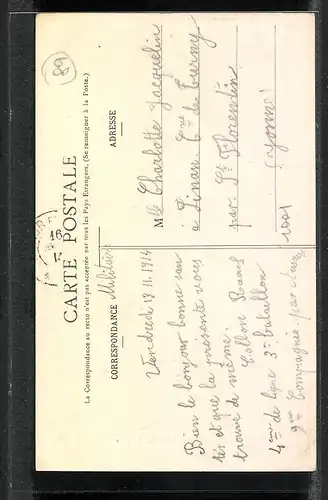 89
CARTE POSTALE
La Correspondance au recto n'est pas acceptée par tous les Pays Etrangers. (Se renseigner à la Poste.)
CORRESPONDANCE
Militaire
ADRESSE
Vendredi 13 11 1914
Bien le bonjour bonne san
tés et que la présente vous
trouve de même.
Collon
4eme de ligne 3e bataillon
9me Compagnie par
Mlle Charlotte Jacquelin
a Linan Cne de Turny
par St Florentin
(Yonne)